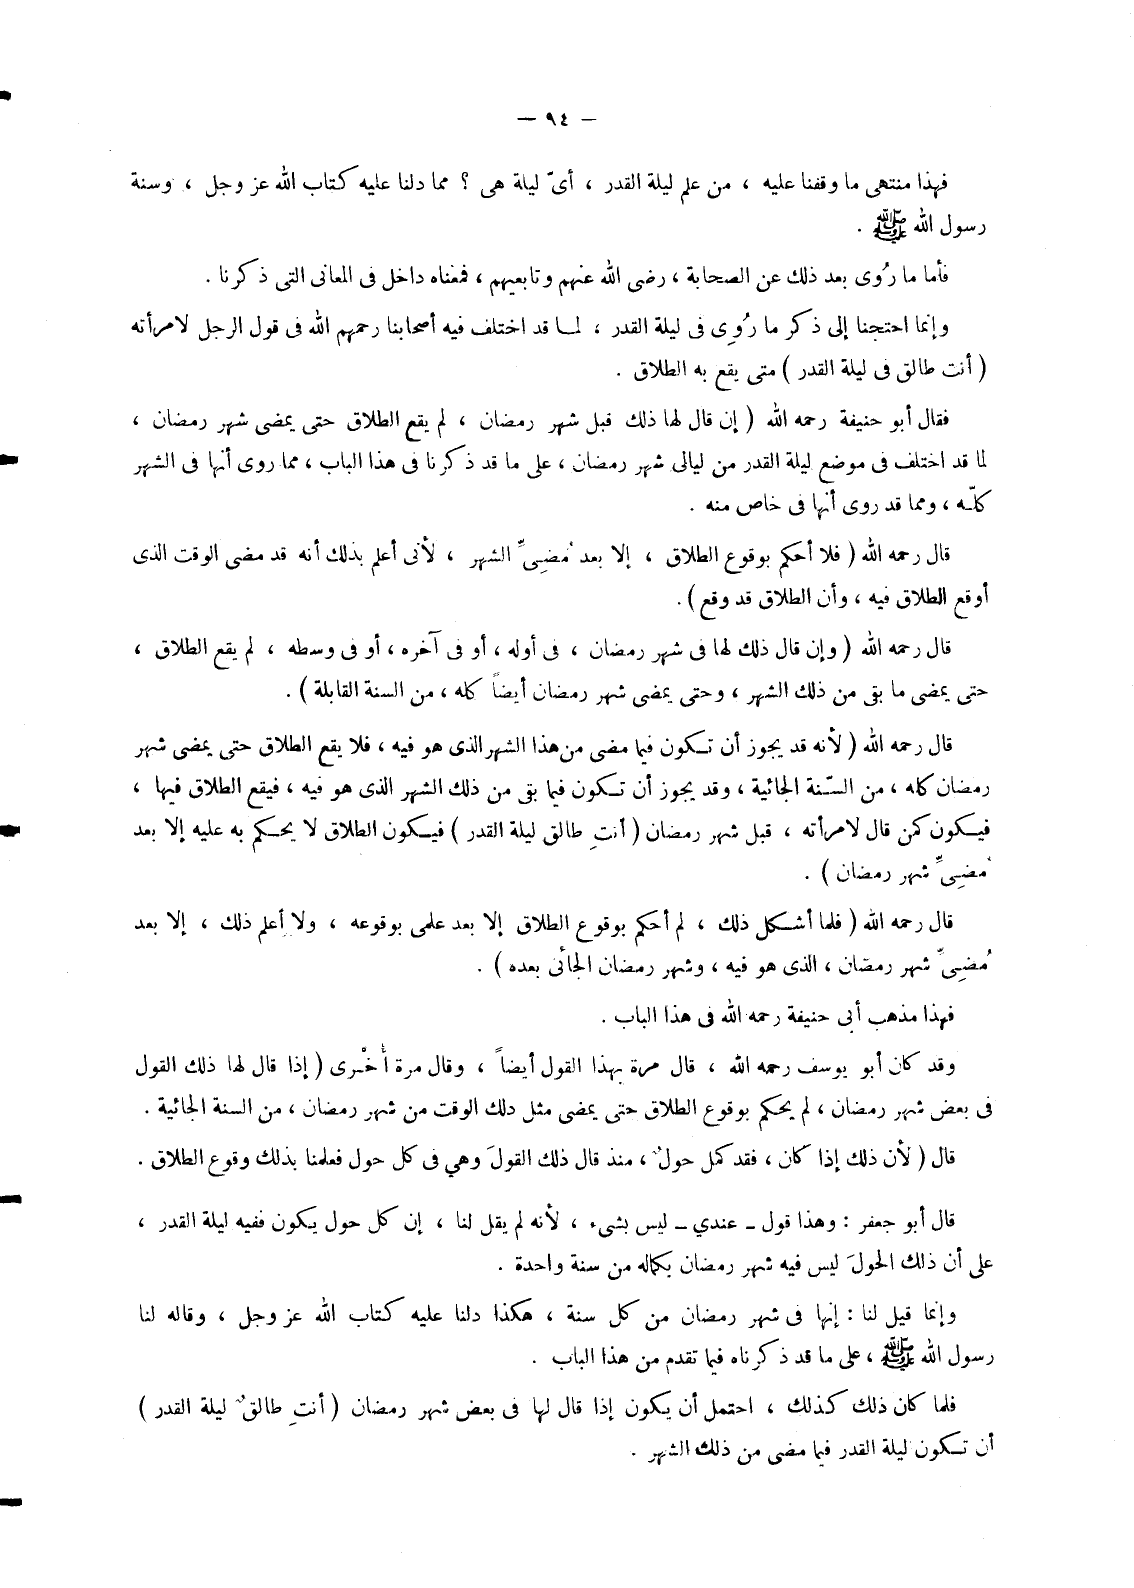 — ٩٤ —
فهذا منتهى ما وقفنا عليه ، من علم ليلة القدر ، أىّ ليلة هى ؟ مما دلنا عليه كتاب الله عز وجل ، وسنة
رسول الله ﷺ .
فأما ما رُوى بعد ذلك عن الصحابة ، رضى الله عنهم وتابعيهم ، فمعناه داخل فى المعانى التى ذكرنا .
وإنما احتجنا إلى ذكر ما رُوِى فى ليلة القدر ، لما قد اختلف فيه أصحابنا رحمهم الله فى قول الرجل لامرأته
( أنت طالق فى ليلة القدر ) متى يقع به الطلاق .
فقال أبو حنيفة رحمه الله ( إن قال لها ذلك قبل شهر رمضان ، لم يقع الطلاق حتى يمضى شهر رمضان ،
لما قد اختلف فى موضع ليلة القدر من ليالى شهر رمضان ، على ما قد ذكرنا فى هذا الباب ، مما روى أنها فى الشهر
كلّه ، ومما قد روى أنها فى خاص منه .
قال رحمه الله ( فلا أحكم بوقوع الطلاق ، إلا بعد مُضِىِّ الشهر ، لأنى أعلم بذلك أنه قد مضى الوقت الذى
أوقع الطلاق فيه ، وأن الطلاق قد وقع ) .
قال رحمه الله ( وإن قال ذلك لها فى شهر رمضان ، فى أوله ، أو فى آخره ، أو فى وسطه ، لم يقع الطلاق ،
حتى يمضى ما بقى من ذلك الشهر ، وحتى يمضى شهر رمضان أيضاً كله ، من السنة القابلة ) .
قال رحمه الله ( لأنه قد يجوز أن تكون فيما مضى من هذا الشهر الذى هو فيه ، فلا يقع الطلاق حتى يمضى شهر
رمضان كله ، من السّنة الجائية ، وقد يجوز أن تكون فيما بقى من ذلك الشهر الذى هو فيه ، فيقع الطلاق فيها ،
فيكون كمن قال لامرأته ، قبل شهر رمضان ( أنتِ طالق ليلة القدر ) فيكون الطلاق لا يحكم به عليه إلا بعد
مُضِىِّ شهر رمضان ) .
قال رحمه الله ( فلما أشكل ذلك ، لم أحكم بوقوع الطلاق إلا بعد علمى بوقوعه ، ولا أعلم ذلك ، إلا بعد
مُضِىِّ شهر رمضان ، الذى هو فيه ، وشهر رمضان الجائى بعده ) .
فهذا مذهب أبى حنيفة رحمه الله فى هذا الباب .
وقد كان أبو يوسف رحمه الله ، قال مرة بهذا القول أيضاً ، وقال مرة أُخْرى ( إذا قال لها ذلك القول
فى بعض شهر رمضان ، لم يحكم بوقوع الطلاق حتى يمضى مثل ذلك الوقت من شهر رمضان ، من السنة الجائية .
قال ( لأن ذلك إذا كان ، فقد كمل حولٌ ، منذ قال ذلك القولَ وهي فى كل حول فعلمنا بذلك وقوع الطلاق .
قال أبو جعفر : وهذا قول ـ عندي ـ ليس بشىء ، لأنه لم يقل لنا ، إن كل حول يكون ففيه ليلة القدر ،
على أن ذلك الحولَ ليس فيه شهر رمضان بكماله من سنة واحدة .
وإنما قيل لنا : إنها فى شهر رمضان من كل سنة ، هكذا دلنا عليه كتاب الله عز وجل ، وقاله لنا
رسول الله ﷺ ، على ما قد ذكرناه فيما تقدم من هذا الباب .
فلما كان ذلك كذلك ، احتمل أن يكون إذا قال لها فى بعض شهر رمضان ( أنتِ طالقٌ ليلة القدر )
أن تكون ليلة القدر فيما مضى من ذلك الشهر .